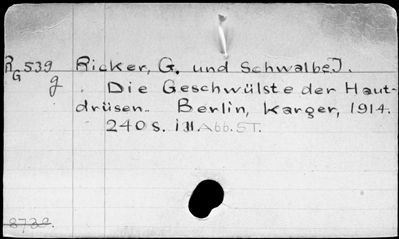 RG539 Ricker, G. und Schwalbe J.
g . Die Geschwülste der Haut-
drüsen. Berlin, Karger, 1914.
240 S. ill Abb. 5 T.
8738.